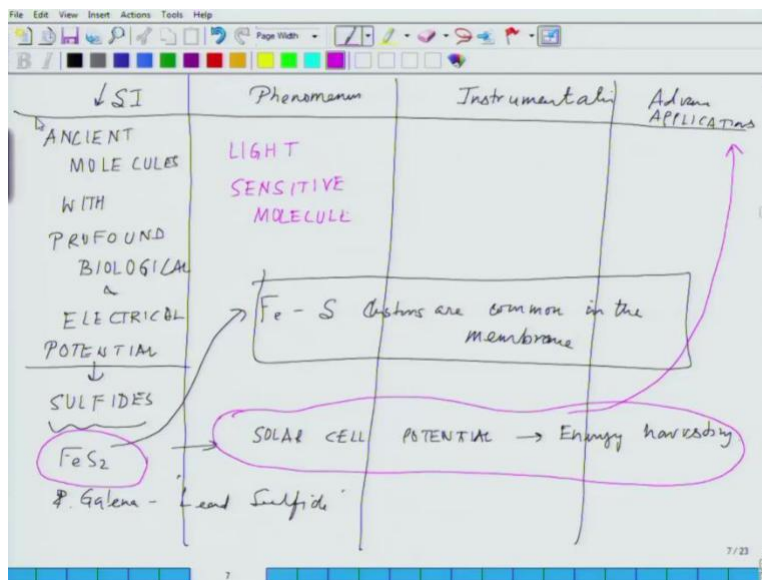 File Edit View Insert Actions Tools Help
Page Width
B I
↓ SI Phenomenon Instrumentati Advan
APPLICATIONS
ANCIENT
MOLECULES
WITH
PROFOUND
BIOLOGICAL
&
ELECTRICAL
POTENTIAL
↓
SULFIDES
FeS2
LIGHT
SENSITIVE
MOLECULE
Fe - S clusters are common in the
membrane
SOLAR CELL POTENTIAL → Energy harvesting
Galena - 'Lead Sulfide'
7/23
7